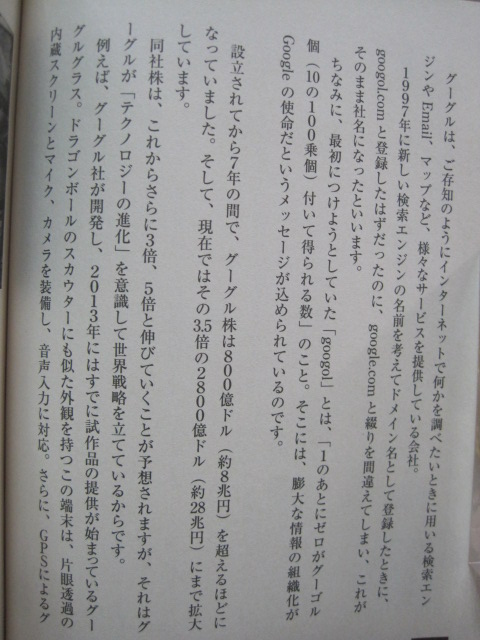 グーグルは、ご存知のようにインターネットで何かを調べたいときに用いる検索エン
ジンや Email、マップなど、様々なサービスを提供している会社。
1997年に新しい検索エンジンの名前を考えてドメイン名として登録したときに、
googol.com と登録したはずだったのに、google.com と綴りを間違えてしまい、これが
そのまま社名になったといいます。
ちなみに、最初につけようとしていた「googol」とは、「1のあとにゼロがグーゴル
個（10の100乗個）付いて得られる数」のこと。そこには、膨大な情報の組織化が
Google の使命だというメッセージが込められているのです。
設立されてから7年の間で、グーグル株は800億ドル（約8兆円）を超えるほどに
なっていました。そして、現在ではその3.5倍の2800億ドル（約28兆円）にまで拡大
しています。
同社株は、これからさらに3倍、5倍と伸びていくことが予想されますが、それはグ
ーグルが「テクノロジーの進化」を意識して世界戦略を立てているからです。
例えば、グーグル社が開発し、2013年にはすでに試作品の提供が始まっているグー
グルグラス。ドラゴンボールのスカウターにも似た外観を持つこの端末は、片眼透過の
内蔵スクリーンとマイク、カメラを装備し、音声入力に対応。さらに、GPSによるグ